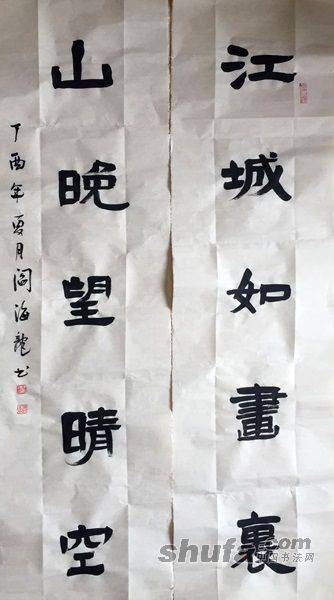 江城如畫裏
山晚望晴空
丁酉年夏月阎海龍书
shufa.com
书法网